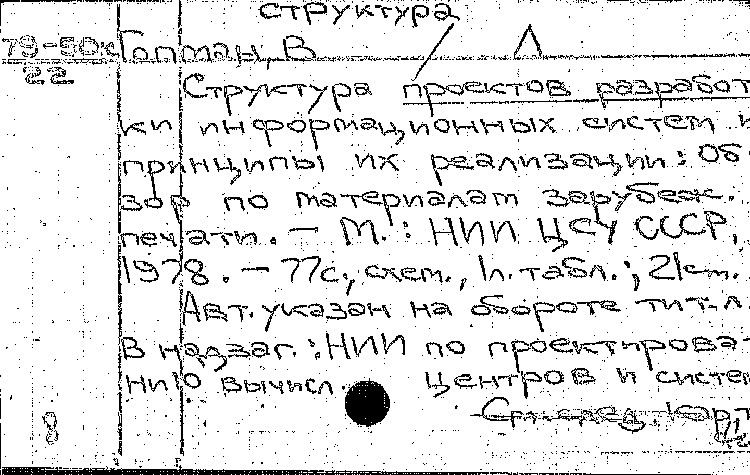 структура
79-50к Гопман, В Л
22
Структура проектов разработ
ки информационных систем и
принципы их реализации: Об-
зор по материалам зарубеж.
печати. – М.: НИИ ЦСУ СССР,
1978. – 77с., схем., 1л. табл.; 21см.
Авт. указан на обороте тит. л.
В надзаг.: НИИ по проектирова-
нию вычисл. центров и систем
См. след. карт
8